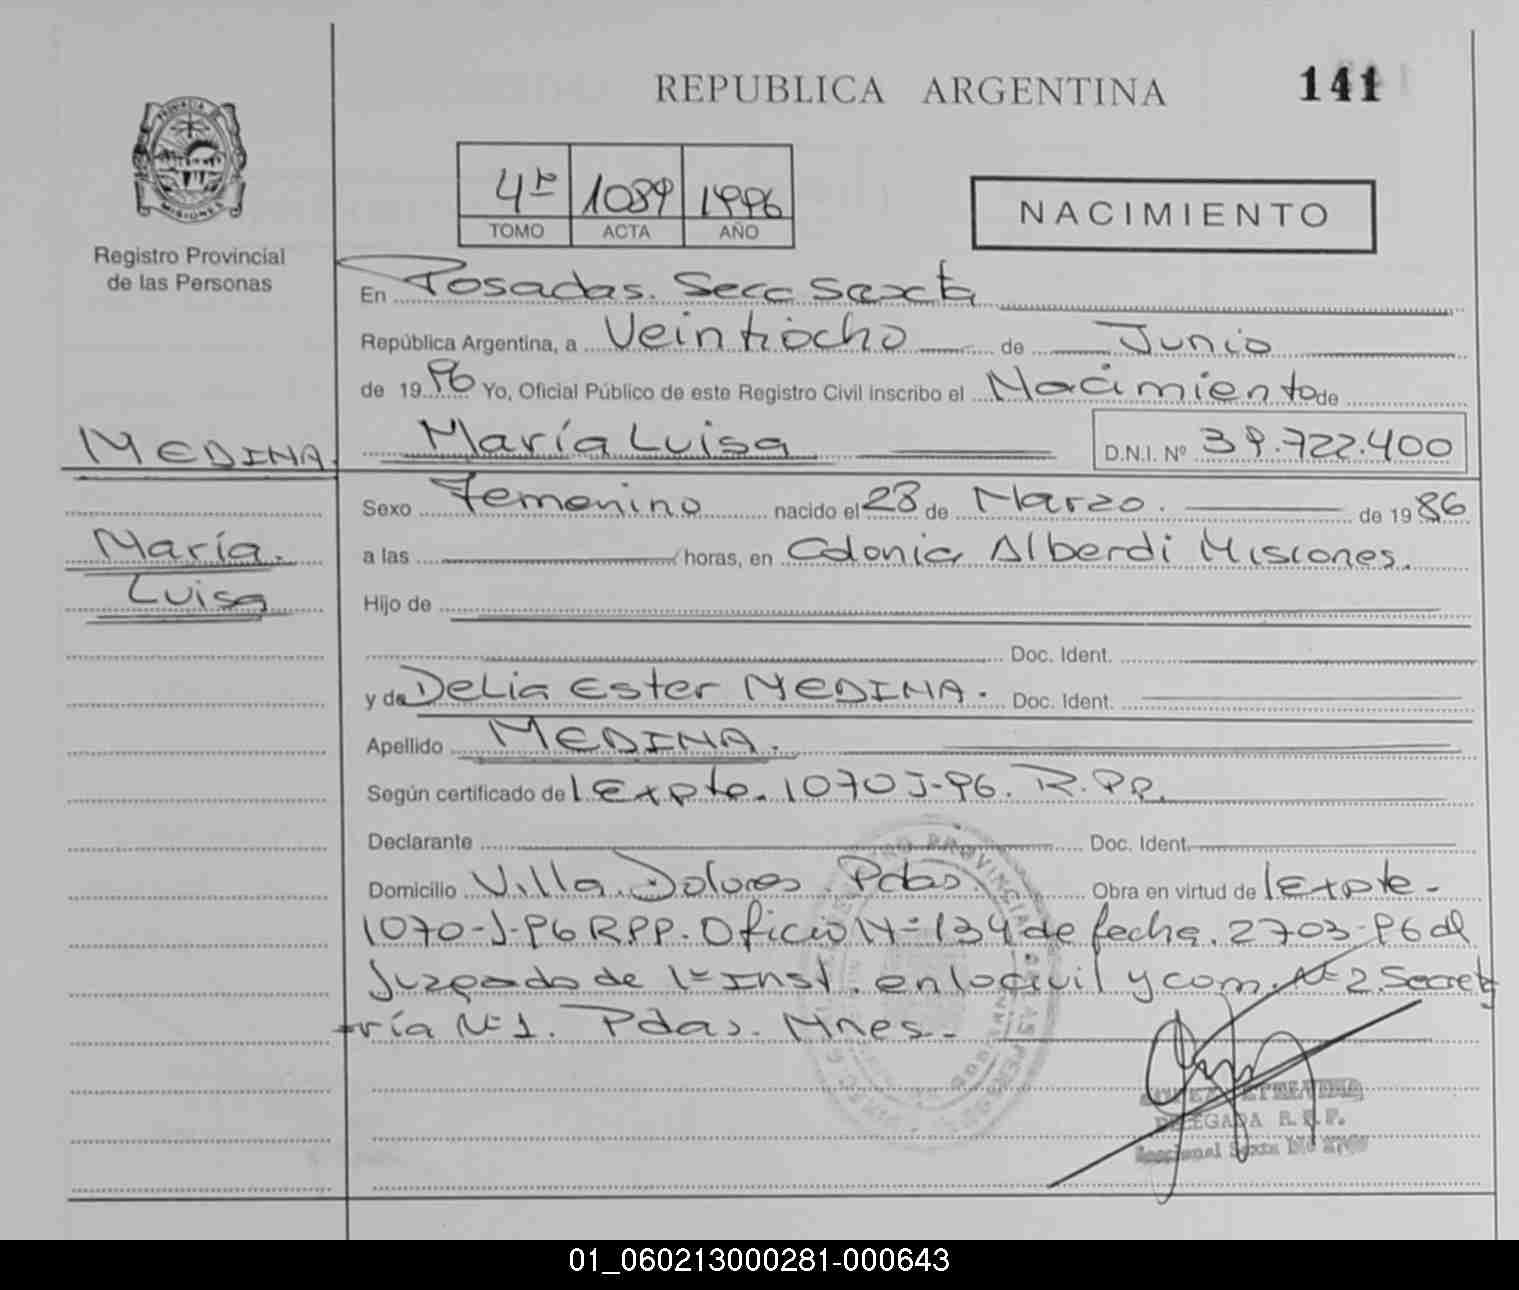 REPUBLICA ARGENTINA
141
PROVINCIA DE
MISIONES
Registro Provincial
de las Personas
4º 1089 1996
TOMO ACTA AÑO
NACIMIENTO
En Posadas. Secc Sexta
República Argentina, a Veintiocho de Junio
de 1996 Yo, Oficial Público de este Registro Civil inscribo el Nacimiento de
MEDINA. María Luisa D.N.I. Nº 39.722.400
Sexo Femenino nacido el 28 de Marzo. de 1986
María. a las horas, en Colonia Alberdi Misiones.
Luisa Hijo de
Doc. Ident.
y de Delia Ester MEDINA. Doc. Ident.
Apellido MEDINA.
Según certificado de Expte. 1070 J-96. R.PP.
Declarante Doc. Ident.
Domicilio Villa Dolores Pdas. Obra en virtud de Expte-
1070-J-96 R.P.P. Oficio Nº 134 de fecha. 27 03-96 del
Juzgado de 1º Inst. en lo civil y com. Nº 2. Secreta
-ría Nº 1. Pdas. Mnes-
DELEGADA R.P.P.
Seccional Sexta
01_060213000281-000643